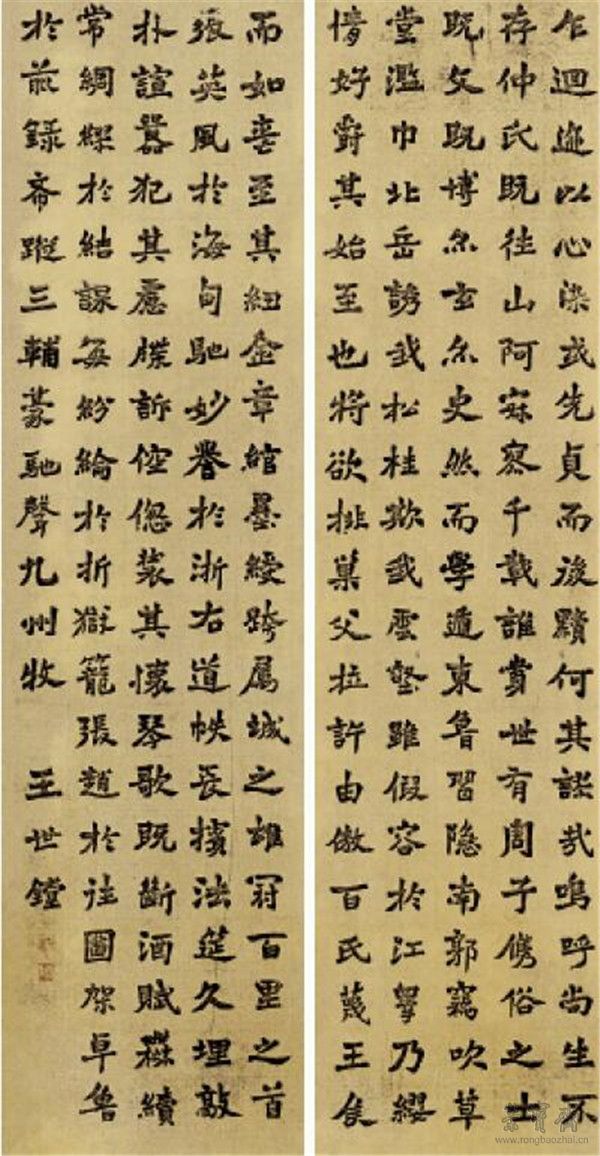 乍迴迹以心染或先貞而後黷何其謬哉嗚呼尚生不
存仲氏既往山阿寂寥千載誰賞世有周子儁俗之士
既文既博亦玄亦史然而學遁東魯習隱南郭竊吹草
堂濫巾北岳誘我松桂欺我雲壑雖假容於江皋乃纓
情好爵其始至也將欲排巢父拉許由傲百氏蔑王侯
而如喪至其紐金章綰墨綬跨屬城之雄冠百里之首
張英風於海甸馳妙譽於浙右道帙長擯法筵久埋敲
朴諠囂犯其慮牒訴倥傯裝其懷琴歌既斷酒賦無續
常綢繆於結課每紛綸於折獄籠張趙於往圖架卓魯
於前錄希蹤三輔豪馳聲九州牧 王世鏜
荣宝斋
www.rongbaozhai.cn